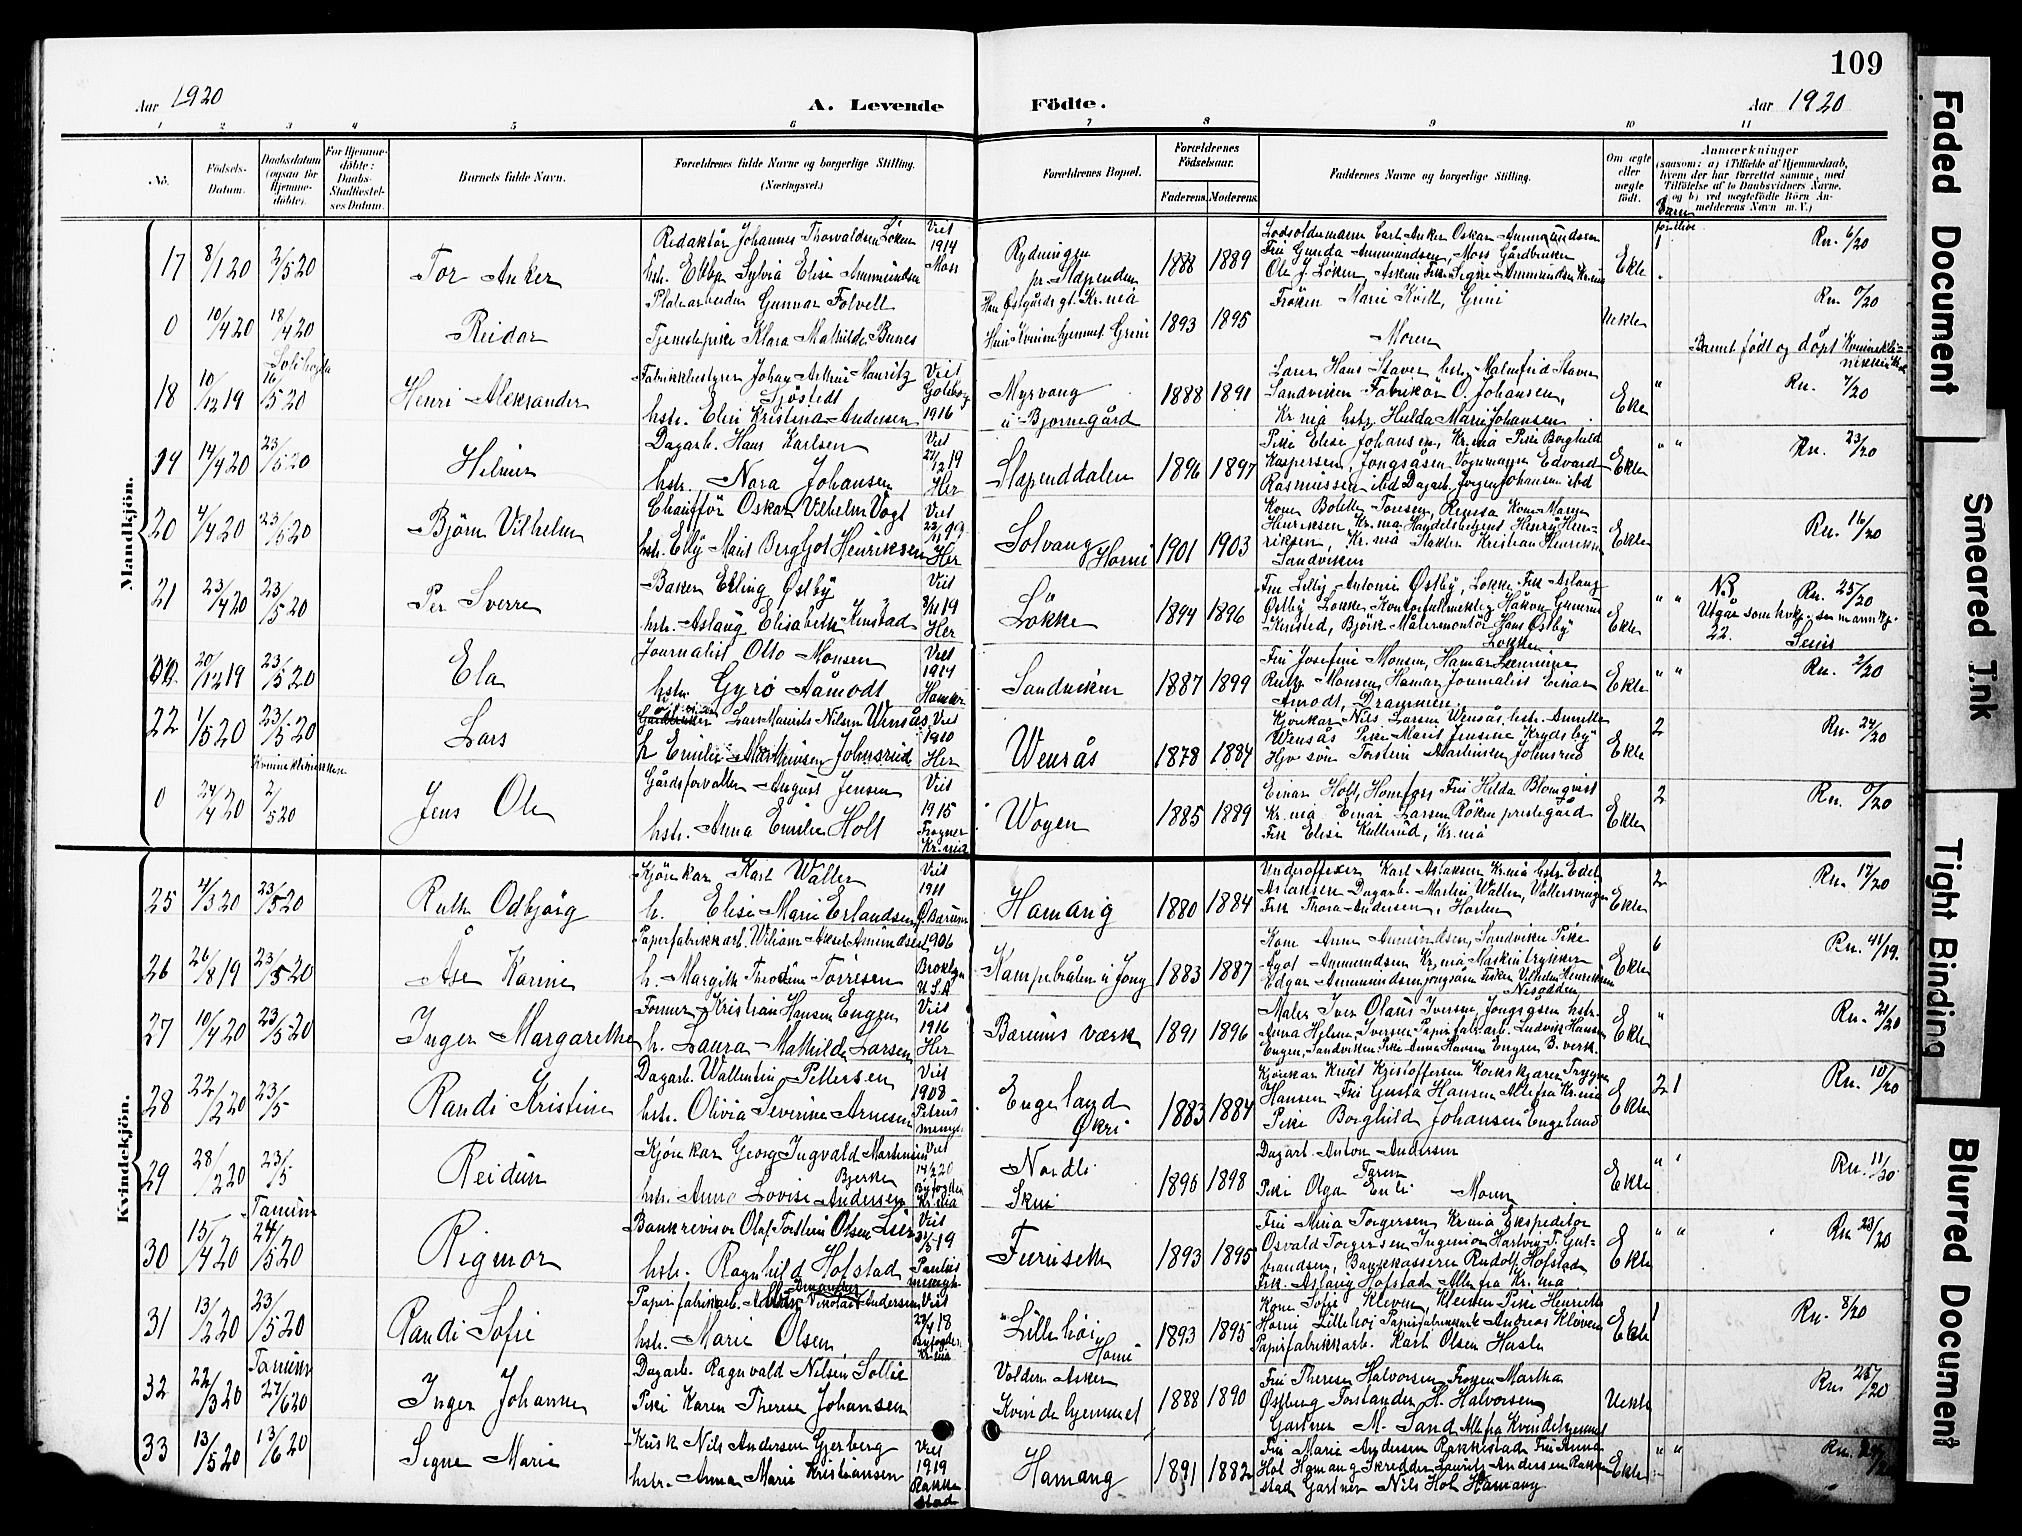 109
Aar 1920
A. Levende
Födte.
Aar 1920
1 2 3 4 5 6 7 8 9 10 11
No.
Fødsels-Datum.
Daabsdatum (ogsaa for Hjemmedøbte).
For Hjemmedøbte: Daabs-Stadfæstelses Datum.
Barnets fulde Navn.
Forældrenes fulde Navne og borgerlige Stilling. (Næringsvei.)
Forældrenes Bopæl.
Forældrenes Fødselsaar.
Faderens. Moderens.
Faddernes Navne og borgerlige Stilling.
Om ægte eller uægte født.
Anmærkninger
(saasom: a) i Tilfælde af Hjemmedaab, hvem der har forrettet samme, med Tilføielse af to Daabsvidners Navne, og b) ved uægtefødte Börn Anmelderens Navn m. V.)
Mandkjön.
17 8/1 20 2/5 20 Tor Anker
Redaktør Johannes Thorvaldsen Löken
hstr. Ebba Sylvia Elise Ammundsen
Viet 1914 Moss
Rydningen pr. Slependen
1888 1889
Lodsoldermann Carl Anker Oskar Ammundsen
Fru Gunda Ammundsen, Moss Gårdbruker
Ole J. Løken, Askim Frk. Signe Ammundsen Kr.nia
Ekte 1 Rn. 6/20
0 10/4 20 18/4 20 Reidar
Platearbeider Gunvar Folvell
Tjenestepike Klara Mathilde Bunes
Han Østgårds gt. Kr.nia
Hun Kvinnehjemmet Grini
1893 1895
Frøken Marie Kvill, Grini
Moren
Uekte
Rn. 0/20
Barnet født og døpt Kvinnekli-
nikken Kr.a
18 10/12 19 16/5 20 Henri Aleksander
Fabrikkbestyrer Johan Arthur Mauritz
Sjöstedt
hstr. Elin Kristina Andersen
Viet Göteborg 1916
Myrvang
i Bjørnegård
1888 1891
Lærer Hans Staver hstr. Malmfrid Staver
Sandviken Fabrikør O. Johansen,
Kr.nia hstr. Hulda Marie Johansen
Ekte " Rn. 7/20
19 14/4 20 23/5 20 Hilmer
Dagarb. Hans Karlsen
hstr. Nora Johansen
Viet 27/12 19 Her
Slependdalen
1896 1897
Pike Elise Johansen, Kr.nia Pike Borghild
Kaspersen, Jongsåsen Vognmann Edvard
Rasmussen ibid Dagarb. Jørgen Johansen ibid
Ekte " " Rn. 23/20
20 4/4 20 23/5 20 Björn Vilhelm
Chaufför Oskar Vilhelm Vogt
hstr. Elly Marit Bergljot Henriksen
Her
Solvang Horni
1901 1903
Henriksen, Kr.nia Handelsbetjent Henry Hen-
riksen, Kr.nia Slakter Kristian Henriksen
Sandviken
Ekte Rn. 16/20
21 23/4 20 23/5 20 Per Sverre
Baker Erling Østby
hstr. Aslaug Elisabeth Kinstad
Viet 8/11 19 Her
Løkke
1894 1896
Fru Lilly Antonie Østby, Løkke Frk Aslaug
Østby Løkke Kontorfullmektig Håkon Gunerius
Kinsted, Björk Målermontör Hans Østby
Løkken
Ekte " " Rn. 25/20
N.B.
Utgår som kvkj. se mannkj.
22.
20/12 19 23/5 20 Ela
Journalist Otto Monsen
hstr. Gyro Aamodt
Viet 1914 Hamar
Sandviken
1887 1899
Fru Josefine Monsen, Hamar
Ruth Monsen, Hamar Journalist Einar
Amodt, Drammen
Ekte " " Rn. 2/20
22 1/5 20 23/5 20 Lars
Lars Maurits Nilsen Wensås
h Emilie Martinsen Johnsrud
Viet 1910 Her
Wensås
1878 1884
Kjørekar Nils Larsen Wensås hstr. Annette
Wensås Pike Marit Jensine Krydsby
Hjv søn Torstein Martinsen Johnsrud
Ekte 2 Rn. 24/20
Kvinneklinikken
0 24/4 20 2/5 20 Jens Ole
Gårdsforvalter August Jensen
hstr. Anna Emilie Holt
Viet 1915 Frogner Kr.nia
Wøyen
1885 1889
Einar Holt, Hønefoss Fru Hilda Blomqvist
Kr.nia Einar Larsen Röken prestegård
Frk Elise Kullerud, Kr.nia
Ekte 2 Rn. 0/20
Kvindekjön.
25 4/3 20 23/5 20 Ruth Odbjörg
Kjørekar Karl Waller
h. Elise Marie Erlandsen
Viet 1911 Ø. Bærum
Hamang
1880 1884
Underofficer Karl Aslaksen Kr.nia hstr. Edel
Aslaksen Dagarb. Martin Waller, Vallersvingen
Frk Thora Andersen, Haslum
Ekte 2 Rn. 17/20
26 26/8 19 23/5 20 Åse Karine
Papirfabrikkarb. Wiliam Aksel Amundsen
h. Margith Theodine Torresen
1906 Broklyn U.S.A
Kampebråten i Jong
1883 1887
Kone Anna Amundsen, Sandviken Pike
Ågot Ammundsen Kr.nia Maskintrykker
Edgar Ammundsen Jongsåsen Fisker Vilhelm Henriksen
Nesodden
Ekte 6 Rn. 41/19.
27 10/4 20 23/5 20 Inger Margarethe
Former Kristian Hansen Engen
h. Laura Mathilde Larsen
Viet 1916 Her
Bærums værk
1891 1896
Maler Iver Olaus Iversen, Jongsåsen hstr.
Anna Helene Iversen Papirfabarb. Ludvik Hansen
Engen, Sandviken. Pike Anna Hansen Engen B. verk.
Ekte " Rn. 21/20
28 22/2 20 23/5 Randi Kristine
Dagarb. Wallentin Pettersen
hstr. Olivia Severine Arnesen
Viet 1908 Petrus menigh.
Engeland
Økri
1883 1884
Kjørekar Knut Kristoffersen Kokkskjærer Trygve
Hansen Fru Gusta Hansen Alle fra Kr.nia
Pike Borghild Johansen Engeland
Ekte 2 1 Rn. 10/20
29 28/2 20 23/5 Reidun
Kjørekar Georg Ingvald Martinsen
Bjerke
hstr. Anna Lovise Andersen
Viet 14/2 20 Byfogden Kr.nia
Nordli
Skui
1896 1898
Dagarb. Anton Andersen
Faren
Pike Olga Enli Moren
Ekte " ' Rn. 11/20
Tanum
30 15/4 20 24/5 20 Rigmor
Bankrevisor Olaf Torstein Olsen Lier
hstr. Ragnhild Hofstad
Viet 31/5 19 Paulus menigh.
Furuseth
1893 1895
Fru Mina Torgersen Kr.nia Ekspeditør
Osvald Torgersen Ingeniør Hartvig T. Gul-
brandsen, Bankkasserer Rudolf Hofstad
Frk. Aslaug Hofstad Alle fra Kr.nia
Ekte " " Rn 23/20
31 13/2 20 23/5 20 Randi Sofie
Papirfabrikkarb. Nikolai Andersen
hstr. Marie Olsen
Viet 27/4 18 Byfogden Kr.nia
Lillehöi
Horni
1893 1895
Kone Sofie Kleven, Kleven Pike Henriette
Horni Lillehöi Papirfabrikkarb Andreas Kleven
Papirfabrikkarb. Karl Olsen Hasle
Ekte 1 Rn. 8/20
Tanum
32 22/3 20 27/6 20 Inger Johanne
Dagarb. Ragnvald Nilsen Sollie
Pike Karen Therese Johansen
Volden Asker
Kvindehjemmet
1888 1890
Fru Therese Halvorsen Frøken Martha
Østberg Forstander H. Halvorsen
Gartner M. Sand Alle fra Kvindehjemmet
Uekte Rn 25/20
33 13/5 20 13/6 20 Signe Marie
Kusk Nils Andersen Gjerberg
hstr. Anna Marie Kristiansen
Viet 1919 Rakkestad
Hamang
1891 1882
Fru Marie Andersen Rakkestad Fru Anna
Hol Hamang Skredder Lauritz Andersen Rakke
stad Gartner Nils Hol Hamang
Ekte " "
Faded Document
Smeared Ink
Tight Binding
Blurred Document